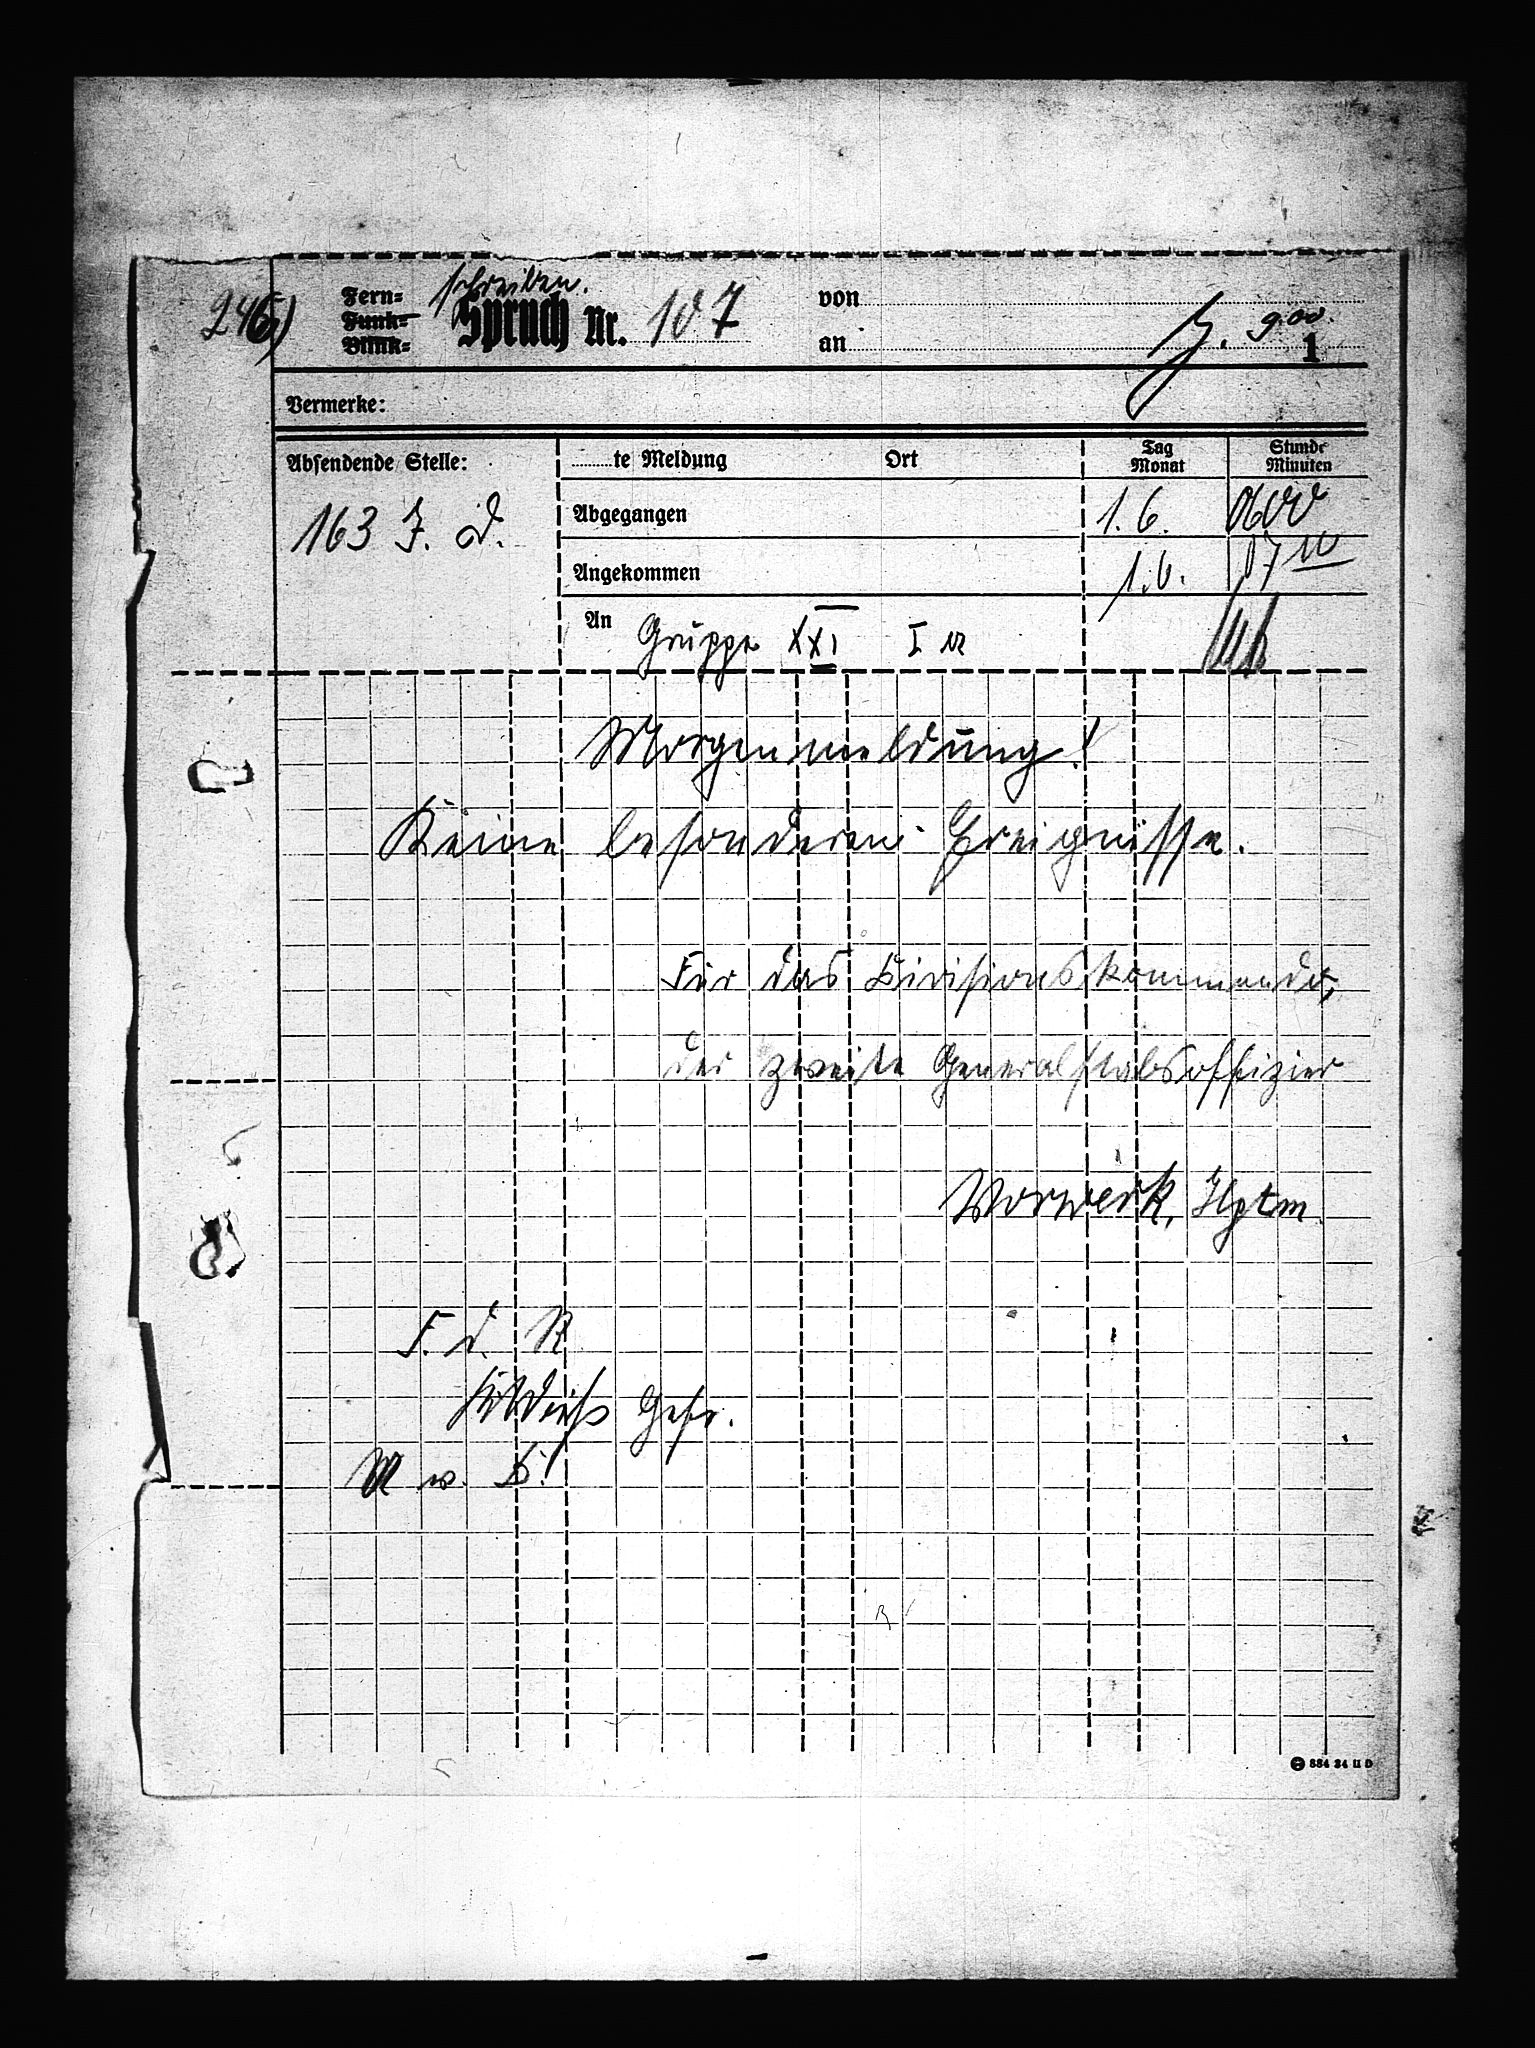 246)
Fern= schreiben.
Funk= Spruch Nr. 107
Blink=
von
an
9.00.
1
Vermerke:
Absendende Stelle:
163 J. D.
te Meldung Ort
Tag Monat
Stunde Minuten
Abgegangen 1.6. 0600
Angekommen 1.6. 07 10
An Gruppe XXI
Morgenmeldung!
Keine besonderen Ereignisse.
Für das Divisionskommando,
der zweite Generalstabsoffizier
Vorwerk, Hptm.
F. d. R.
Gefr.
834 34 II D